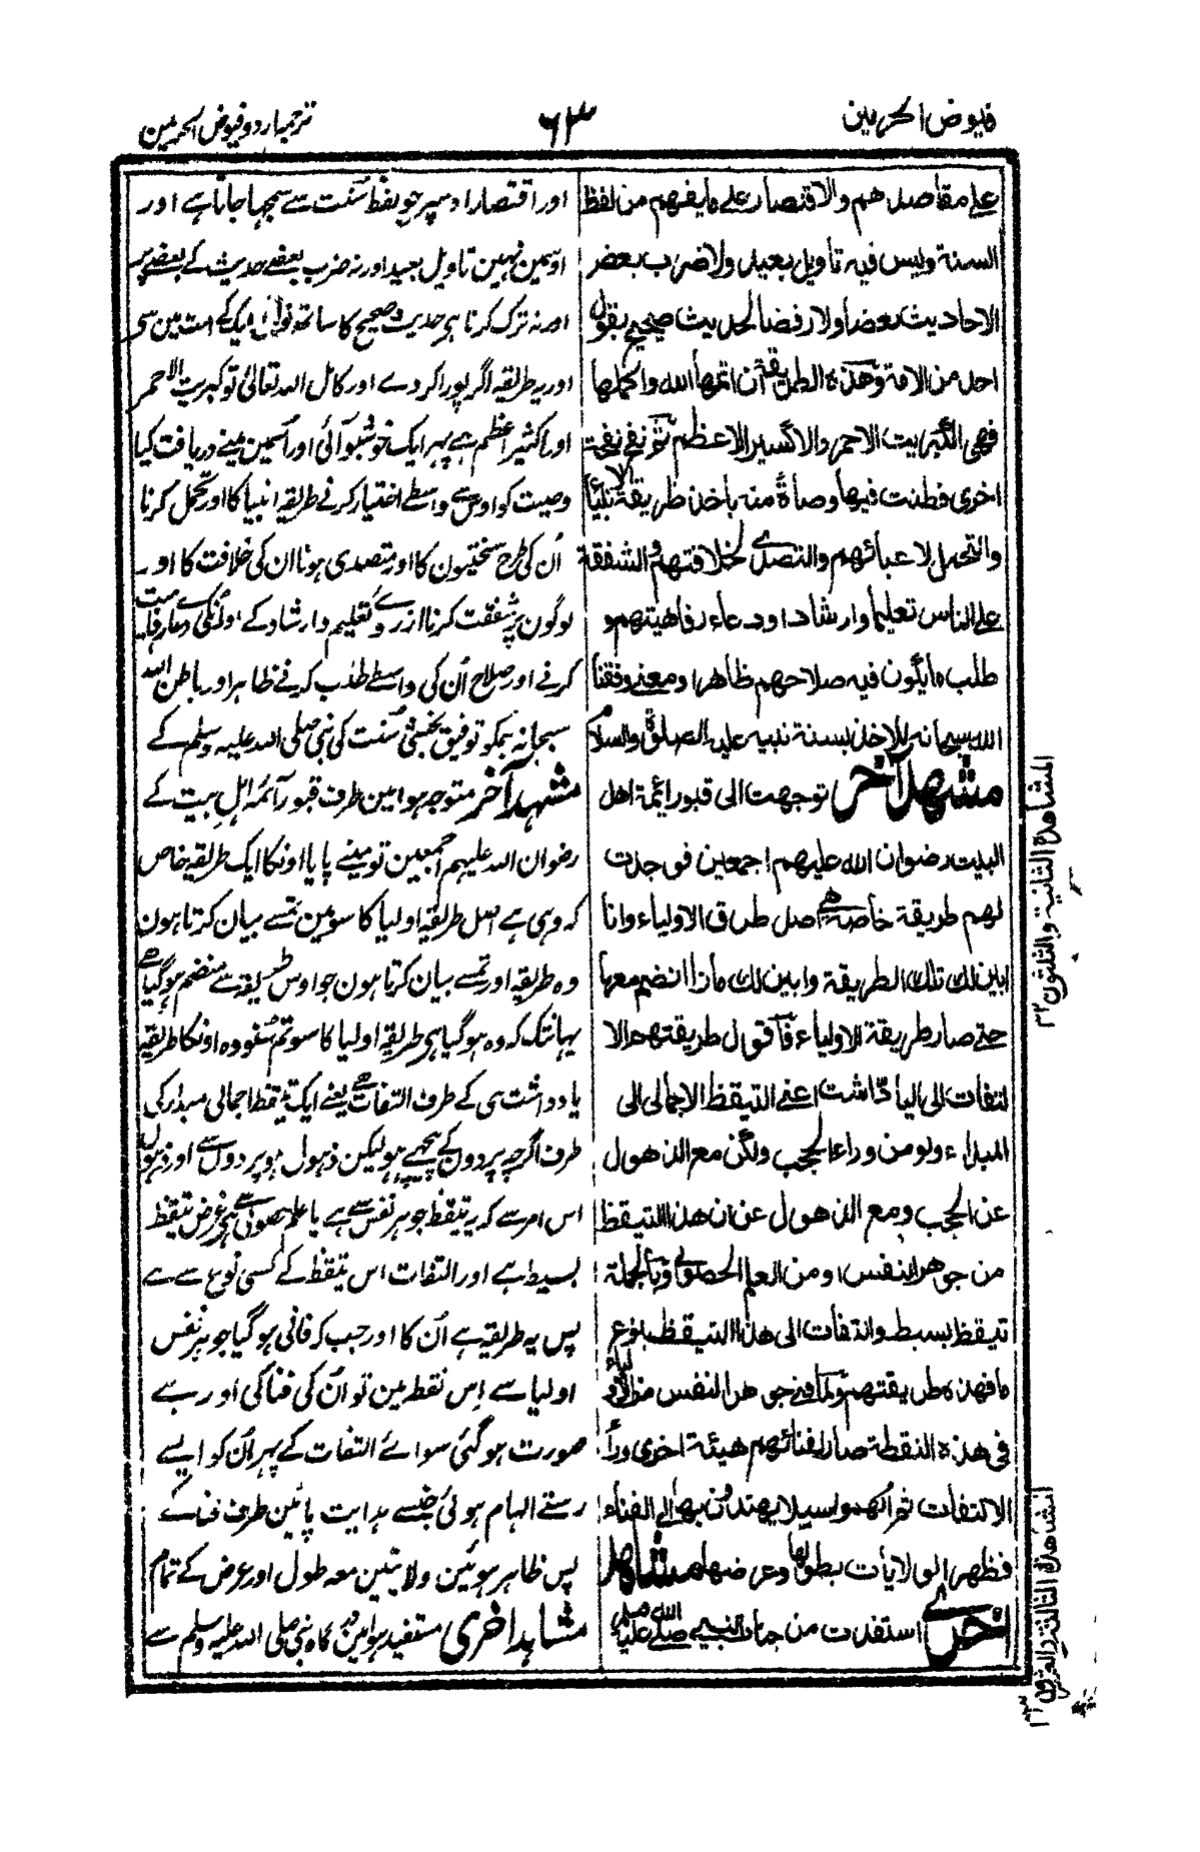 فيوض الحرمين
٦٣
ترجمہ اردو فیوض الحرمین
علے مقاصدهم والاقتصار علے مايفهم من لفظ
السنة وليس فيه تاويل بعيد ولا ضرب بعض
الاحاديث بعضا ولا رفضا لحديث صحيح بقول
احد من الامة وهذه الطريقة ان اتمها الله واكملها
فهى الكبريت الاحمر والاكسير الاعظم ثم نفح نفحة
اخرى فطنت فيها وصاة منه باخذ طريقة الانبياء
والتحمل لاعبائهم والتصدى لخلافتهم والشفقة
على الناس تعليما وارشادا ودعاء رفاهيتهم و
طلب مايكون فيه صلاحهم ظاهرا ومعنى وفقنا
الله سبحانه للاخذ بسنة نبيه عليه الصلوة والسلام
مشهد آخر توجهت الى قبور ائمة اهل
البيت رضوان الله عليهم اجمعين فوجدت
لهم طريقة خاصة هى اصل طرق الاولياء وانا
ابين لك تلك الطريقة وابين لك ماذا انضم معها
حتے صار طريقة الاولياء فاقول طريقتهم الا
لتفات الى الياد داشت اعنے التيقظ الاجمالى الى
المبداء ولو من وراء الحجب ولكن مع الذهول
عن الحجب ومع الذهول عن ان هذا التيقظ
من جوهر النفس او من العلم الحصولى وبالجملة
تيقظ بسيط والتفات الى هذا التيقظ بنوع
ما فهذه طريقتهم ولما فنے جوهر النفس من الاولياء
فى هذه النقطة صار لفنائهم هيئة اخرى وراء
الالتفات ثم الهموا سبيلا يهتدون بها الى الفناء
فظهر الولايات بطولها وعرضها مشاهد
اخرى استفدت من جناب النبى صلے الله عليه
اور اقتصار اوسپر جو لفظ سُنت سے سمجہا جاتا ہے اور
اوسمین نہین تاویل بعید اور نہ ضرب بعضے حدیث کے بعضے پر
اور نہ ترک کرنا ہر حدیث صحیح کا ساتھ قول ایک کے امت مین سے
اور یہ طریقہ اگر پورا کر دے اور کامل اللہ تعالیٰ تو کبریت الاحمر
اور اکسیر اعظم ہے پہر ایک خوشبو آئی اور اُسمین مینے دریافت کیا
وصیت کو اوس سے واسطے اختیار کرنے طریقہ انبیا کا اور تحمل کرنا
اُن کی طرح سختیون کا اور متصدی ہونا ان کی خلافت کا اور
لوگون پر شفقت کرنا از روے تعلیم و ارشاد کے اور اُنکی دعا رفاہیت
کرنے اور صلاح اُن کی واسطے طلب کرنے ظاہر اور باطن اللہ
سبحانہ ہمکو توفیق بخشی سُنت کی نبی صلی اللہ علیہ وسلم کے
مشہد آخر متوجہ ہوا مین طرف قبور آئمہ اہل بیت کے
رضوان اللہ علیہم اجمعین تو مینے پایا اونکا ایک طریقہ خاص
کہ وہی ہے اصل طریقہ اولیا کا سو مین تمسے بیان کرتا ہون
وہ طریقہ اور تمسے بیان کرتا ہون جو اوس طریقہ سے منضم ہو گیا ہے
یہانتک کہ وہ ہو گیا ہے طریقہ اولیا کا سو تم سُنو وہ اونکا طریقہ
یادداشت ہی کے طرف التفات ہے یعنے ایک تیقظ اجمالی مبدا کی
طرف اگرچہ پردون کے پیچہے ہو لیکن ذہول ہو پردون سے اور ذہول
اس امر سے کہ یہ تیقظ جوہر نفس سے ہے یا علم حصولی سے ہے غرض تیقظ
بسیط ہے اور التفات اس تیقظ کے کسی نوع سے ہے
پس یہ طریقہ ہے اُن کا اور جب کہ فانی ہو گیا جوہر نفس
اولیا سے اِس نقطہ مین تو اُن کی فنا کی اور ہے
صورت ہو گئی سوائے التفات کے پہر اُن کو ایسے
رستے الہام ہوئی جنسے ہدایت پائین طرف فنا کے
پس ظاہر ہوئین ولائتین معہ طول اور عرض کے تمام
مشاہد اخری مستفید ہوا مین درگاہ نبی صلی اللہ علیہ وسلم سے
المشاهدة الثانية والثلثون ٣٢
المشاهدة الثالثة والثلثون ٣٣